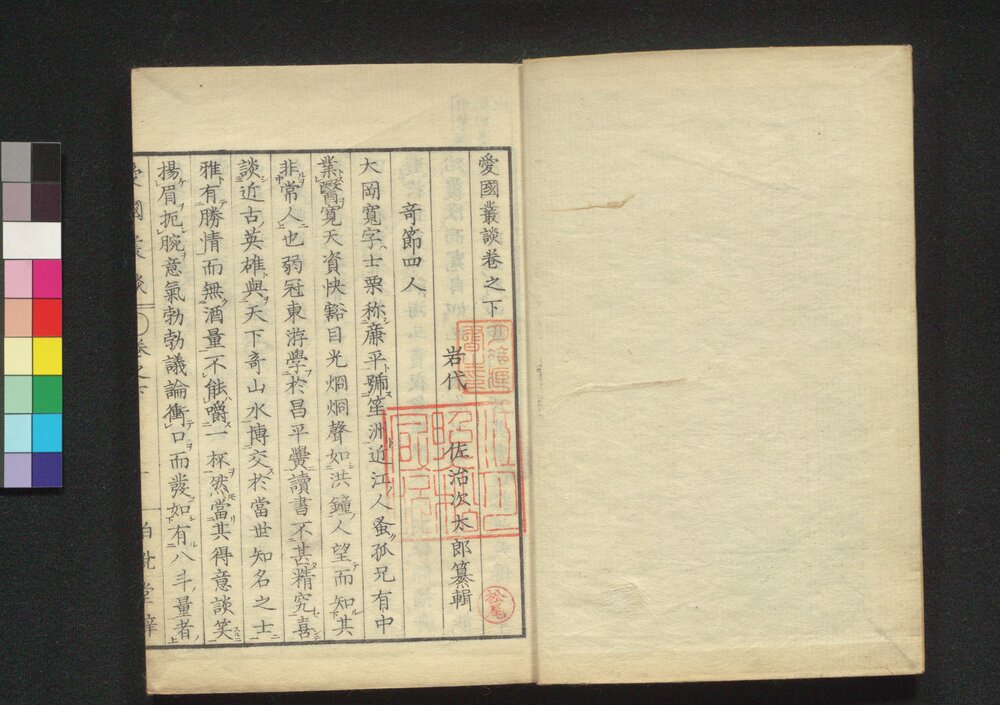 愛國叢談卷之下
岩代 佐治次太郎纂輯
奇節四人
大岡寬字士栗称廉平號笙洲近江人蚤孤兄有中
業醫寬天資快豁目光烱烱聲如洪鐘人望而知其
非常人也弱冠東游學於昌平黌讀書不甚精究喜
談近古英雄與天下奇山水博交於當世知名之士
雅有勝情而無酒量不能嚼一杯然當其得意談笑
揚眉扼腕意氣勃勃議論衝口而發如有八斗量者
松尾